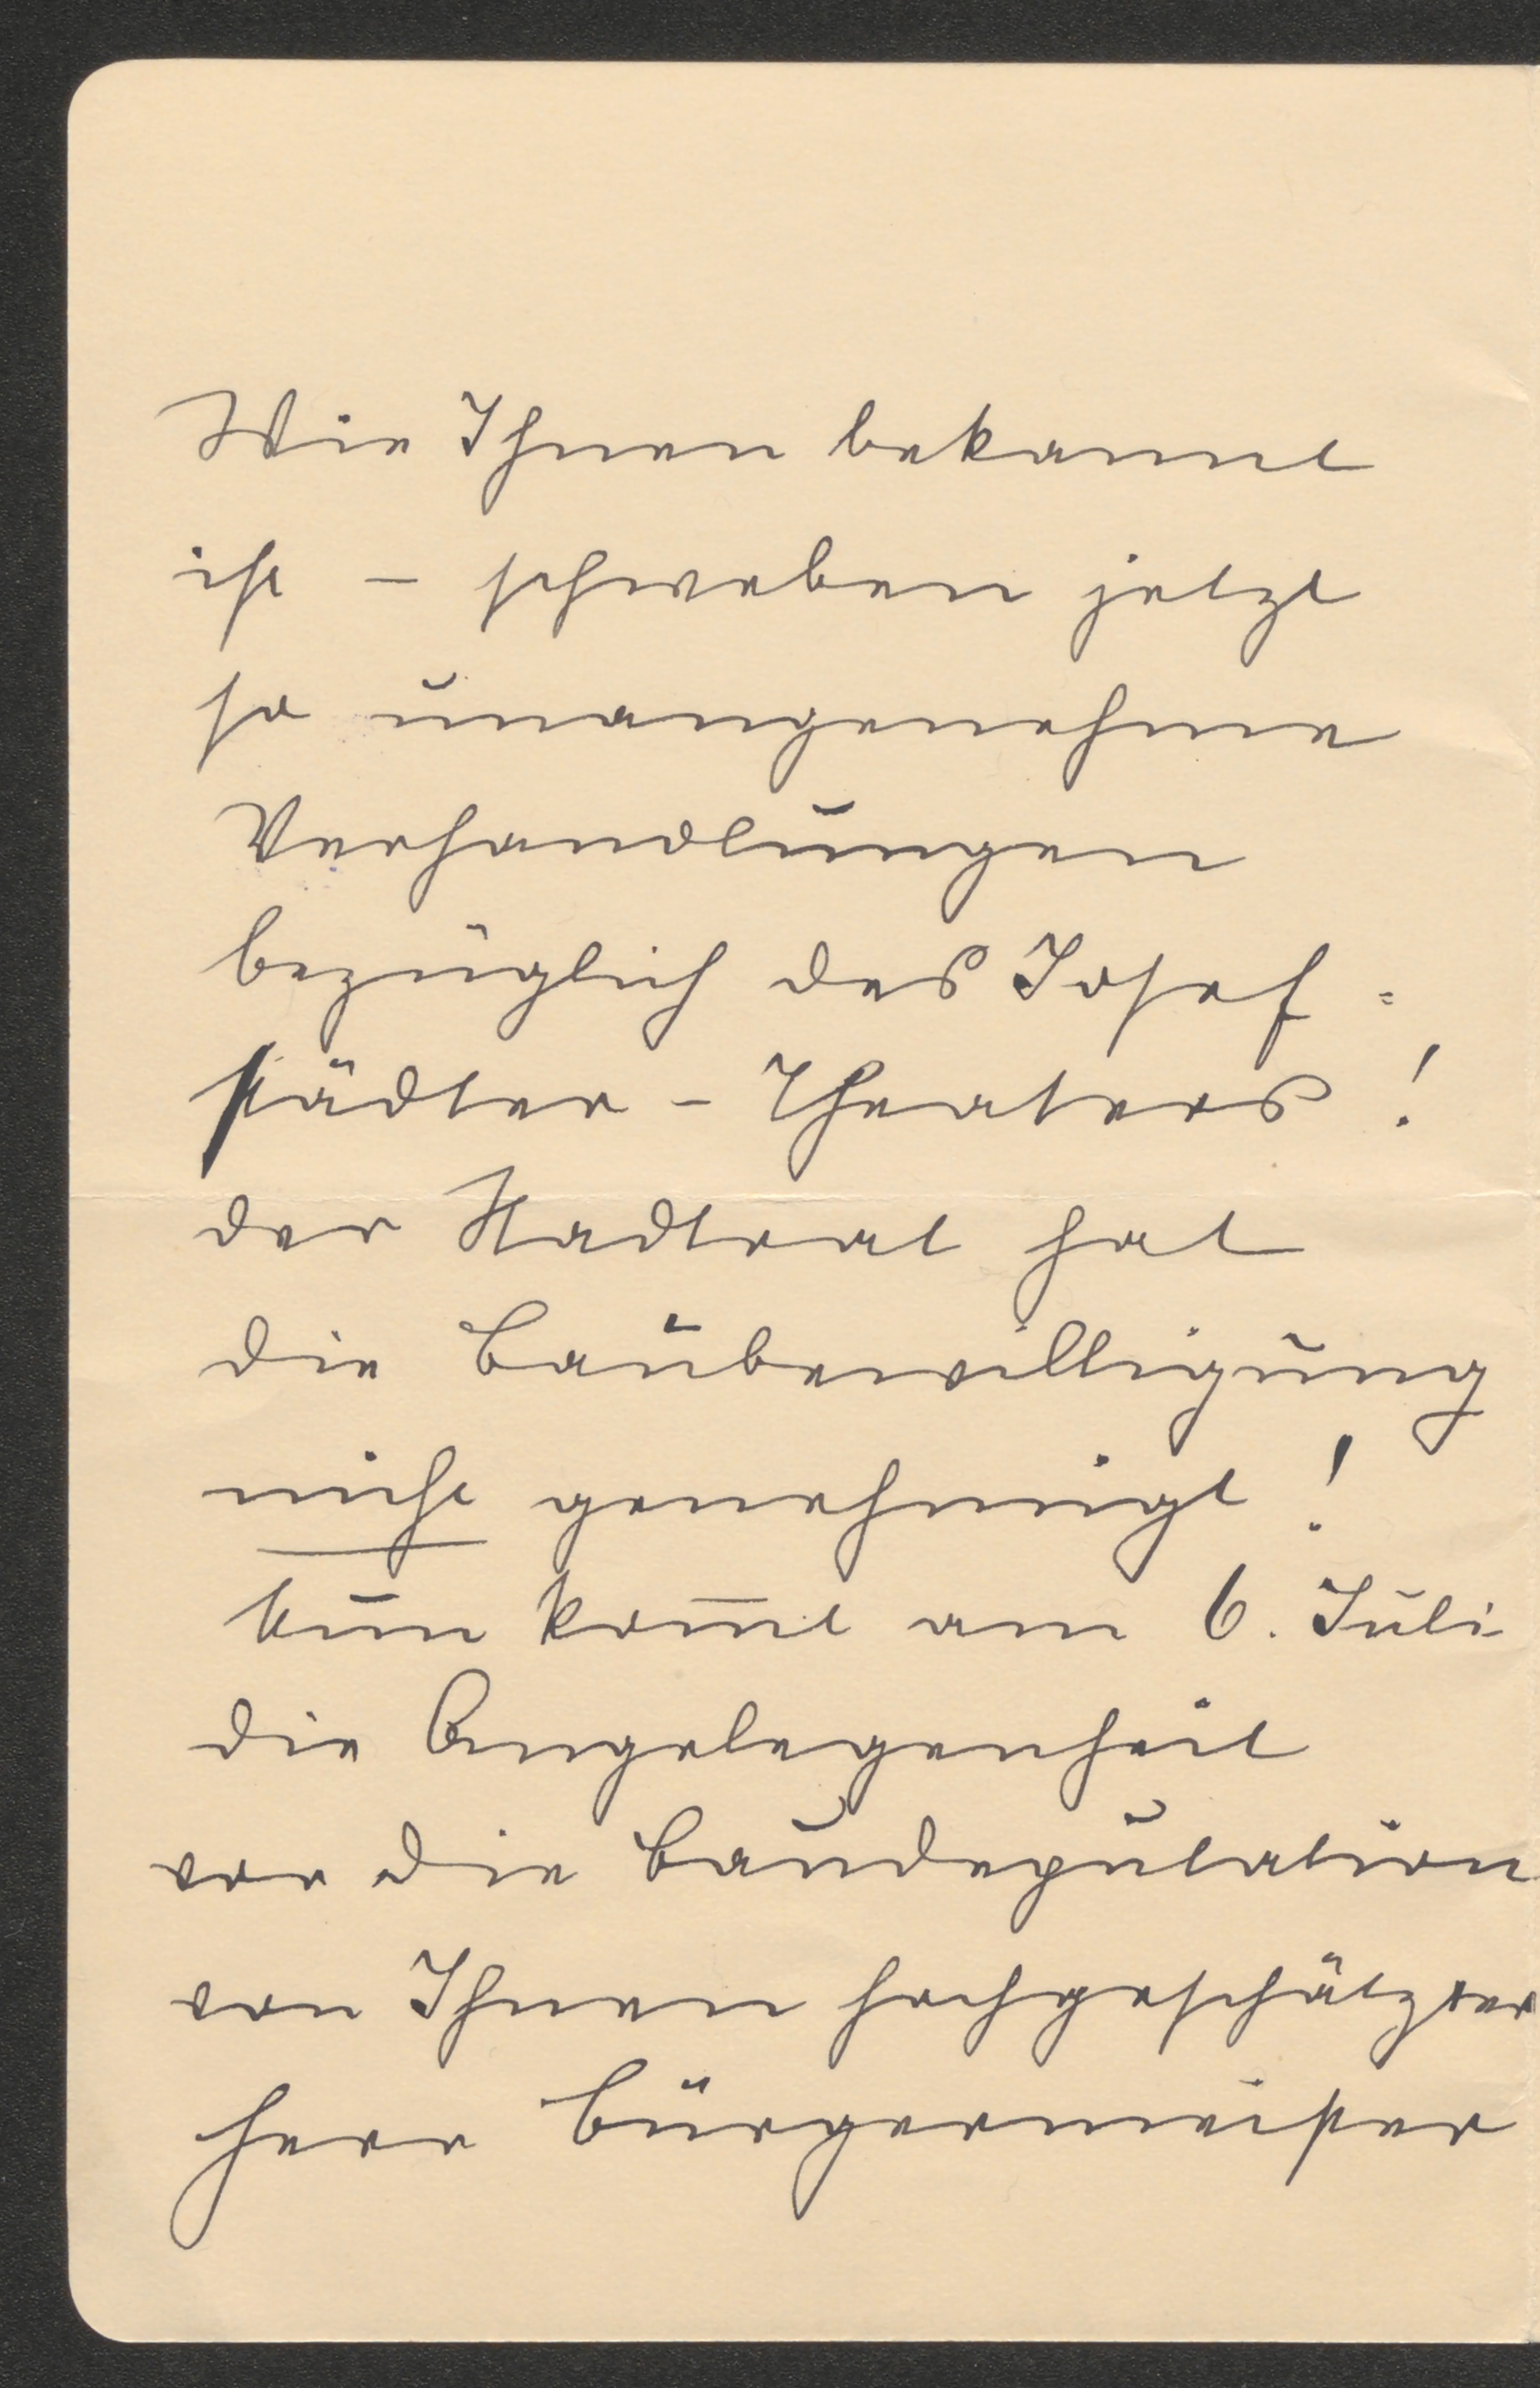 Wie Ihnen bekannt
ist – schweben jetzt
so unangenehme
Verhandlungen
bezüglich des Josef=
städter – Theaters!
der Stadtrat hat
die Baubewilligung
nicht genehmigt!
Nun kom̅t am 6. Juli
die Angelegenheit
vor die Baudeputation
von Ihnen hochgeschätzter
Herr Bürgermeister